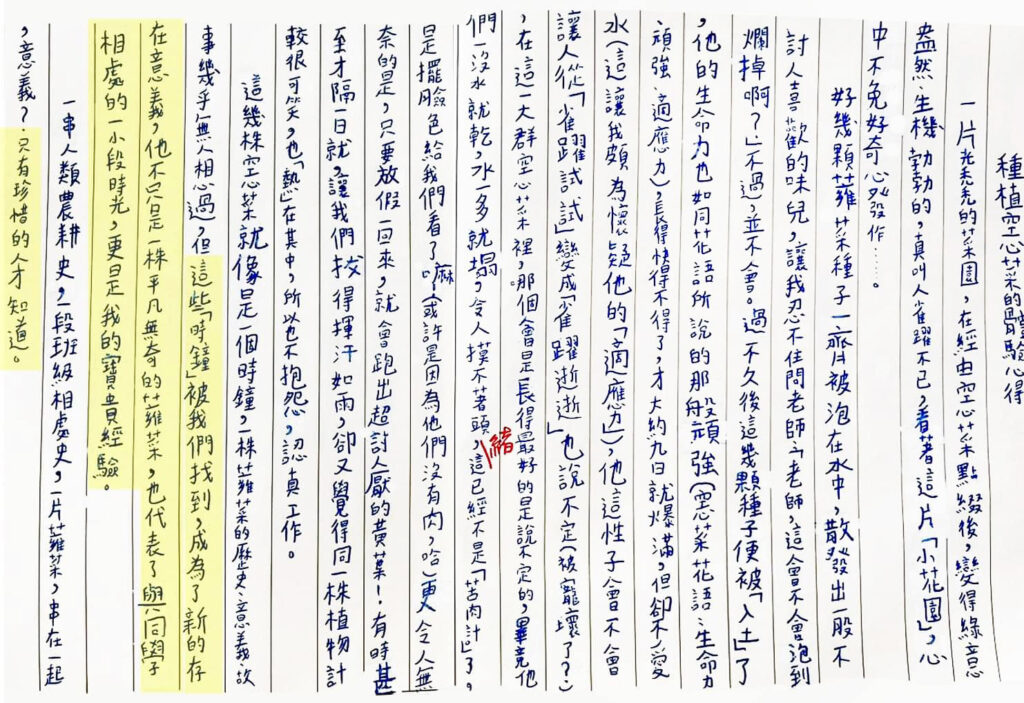 種植空心菜的體驗心得
一片光禿禿的菜園，在經由空心菜點綴後，變得綠意
盎然、生機勃勃的，真叫人雀躍不已，看著這片「小花園」，心
中不免好奇心發作……。
好幾顆蕹菜種子一齊被泡在水中，散發出一股不
討人喜歡的味兒，讓我忍不住問老師：「老師，這會不會泡到
爛掉啊？」不過，並不會。過不久後這幾顆種子便被「入土」了
，他的生命力也如同花語所說的那般頑強（空心菜花語：生命力
頑強、適應力），長得快得不得了，才大約九日就爆滿，但卻不愛
水（這讓我頗為懷疑他的「適應力」），他這性子會不會
讓人從「雀躍試試」變成「雀躍逝逝」也說不定（被寵壞了？）
，在這一大群空心菜裡，那個會是長得最好的是說不定的，畢竟他
們一沒水就乾，水一多就塌，令人摸不著頭緒，這已經不是「苦肉計」了。
是擺臉色給我們看了嘛（或許是因為他們沒有肉，哈）更令人無
奈的是，只要放假一回來，就會跑出超討人厭的黃葉！有時甚
至才隔一日就，讓我們拔得揮汗如雨，卻又覺得同一株植物計
較很可笑，也「熱」在其中，所以也不抱怨，認真工作。
這幾株空心菜就像是一個時鐘，一株蕹菜的歷史、意義、故
事幾乎無人想過，但這些「時鐘」被我們找到，成為了新的存
在意義，他不只是一株平凡無奇的蕹菜，也代表了與同學
相處的一小段時光，更是我的寶貴經驗。
一串人類農耕史，一段班級相處史，一片蕹菜，串在一起
，意義？只有珍惜的人才知道。